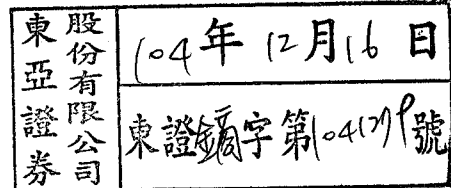 東亞證券
股份有限公司
104年12月16日
東證鏑字第1041279號